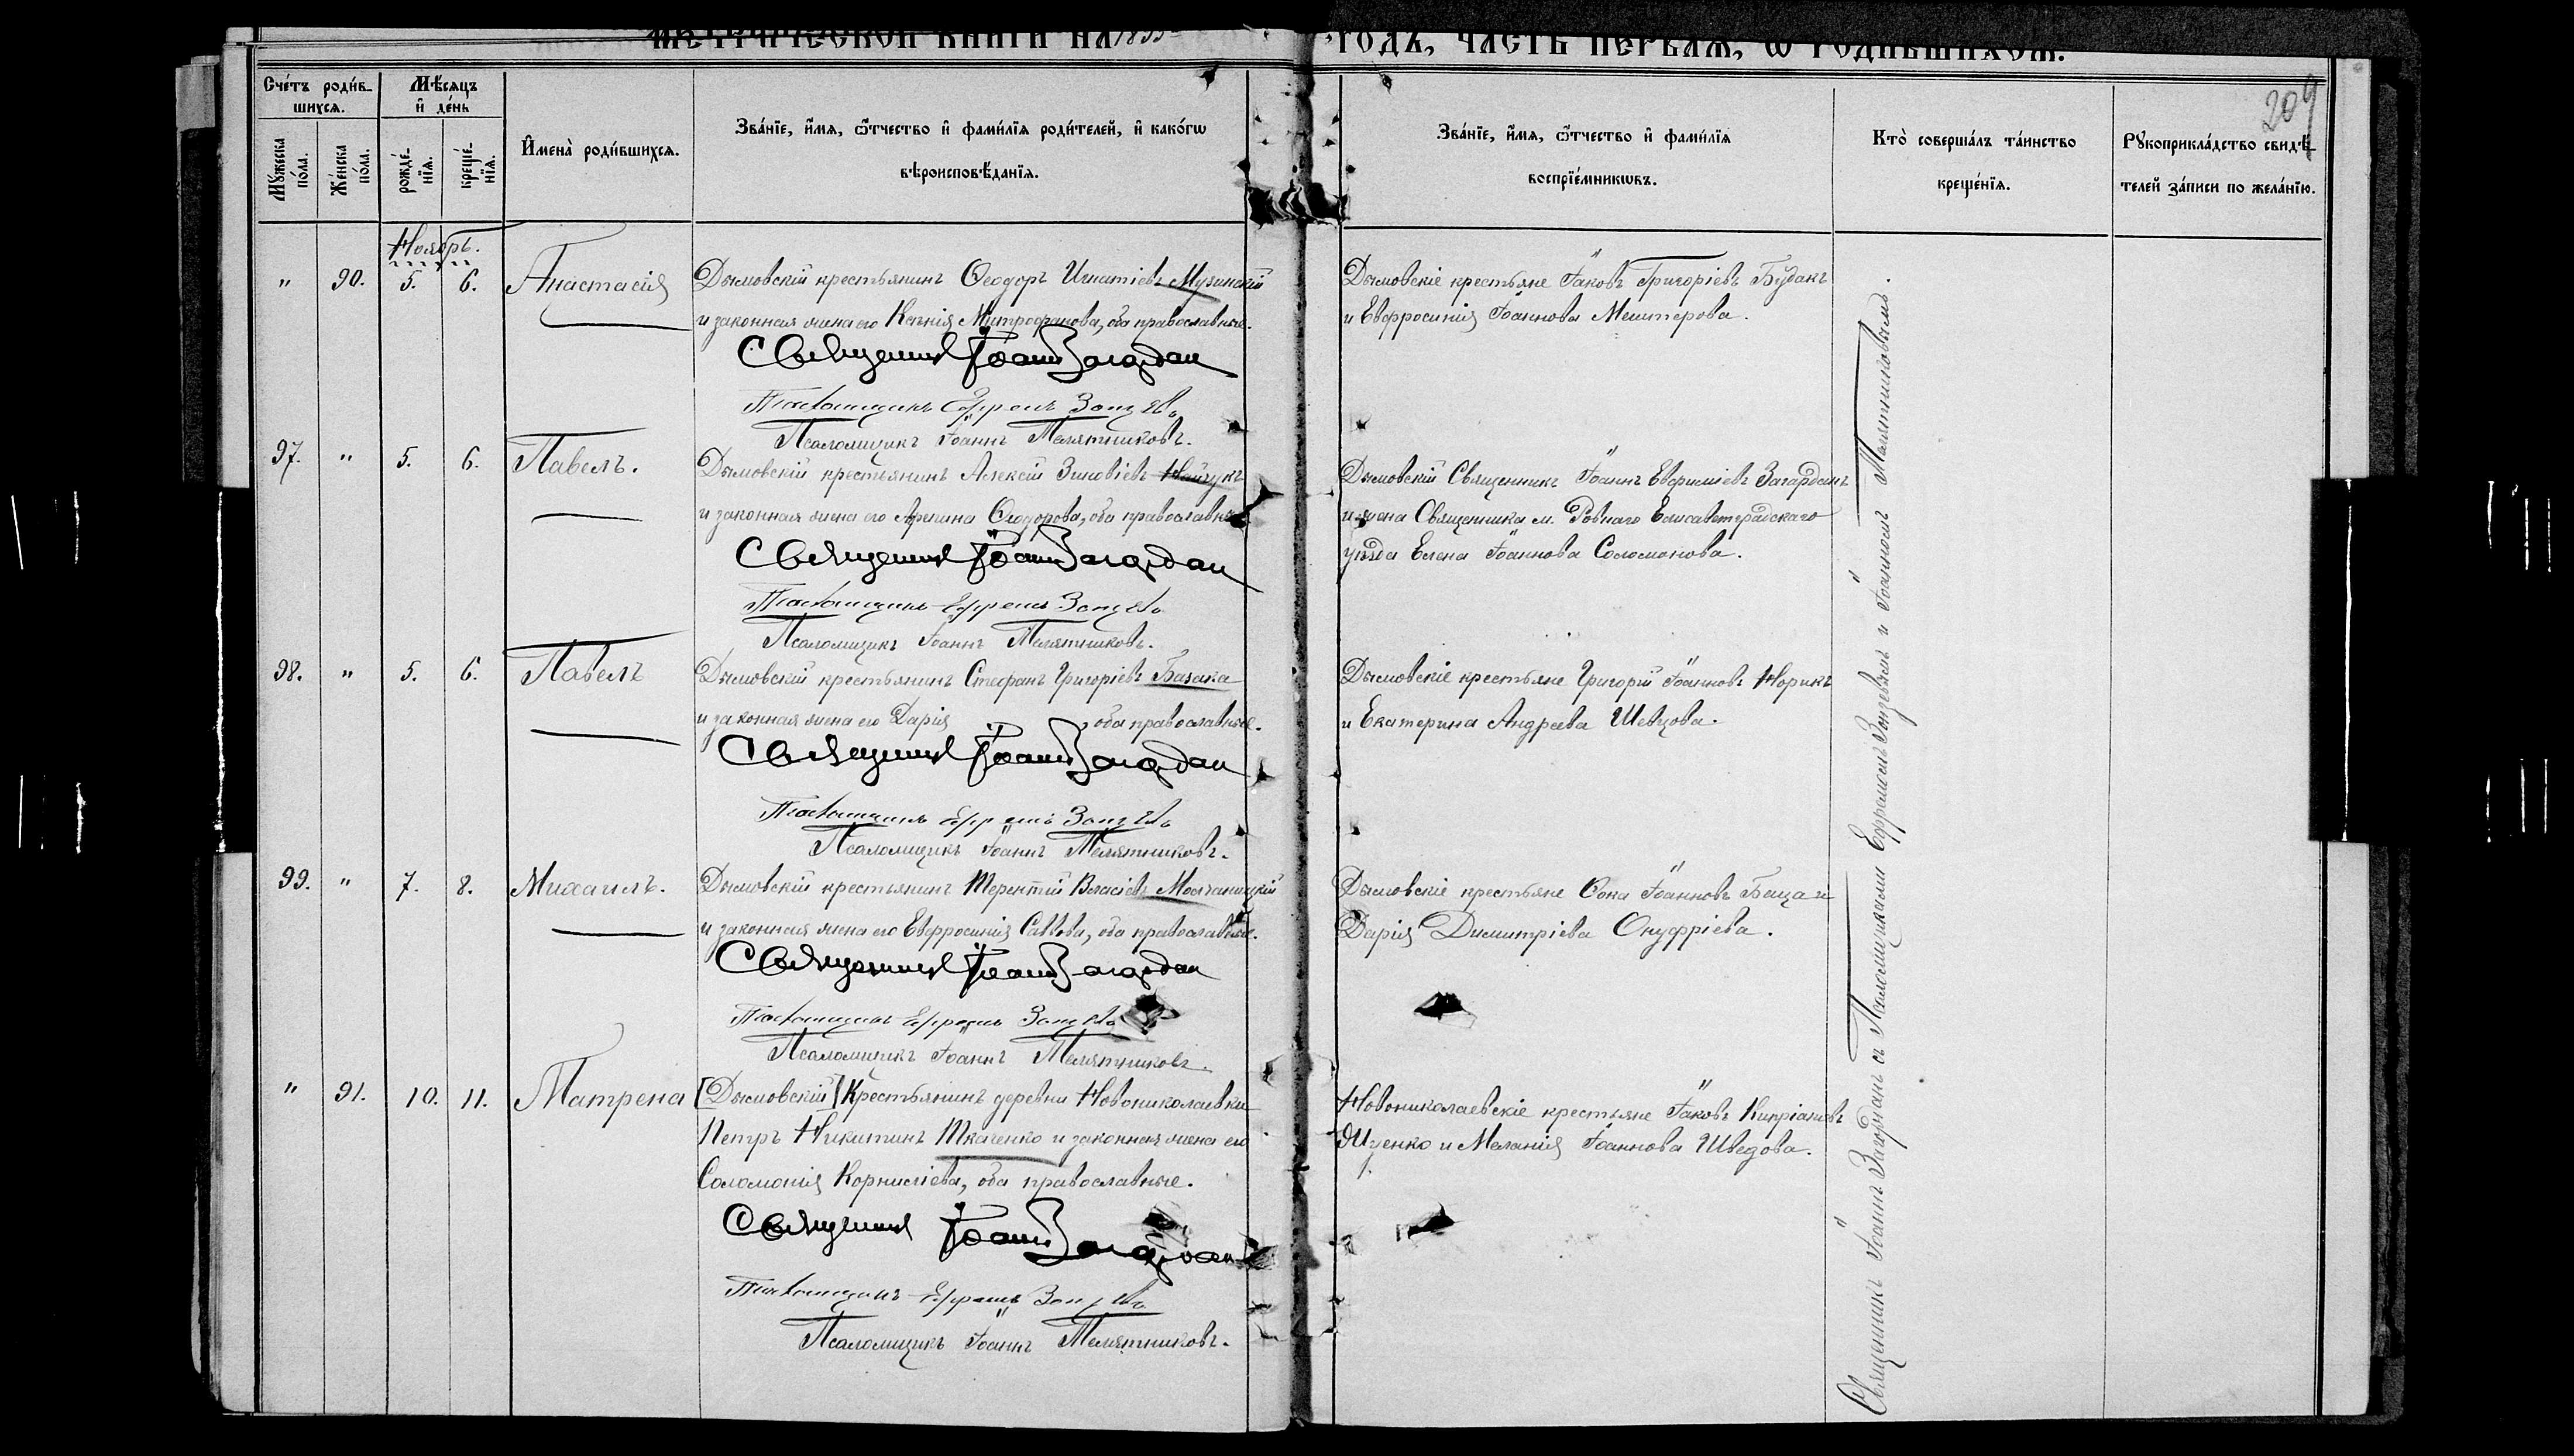 МЕТРИЧЕСКОЙ КНИГИ НА 18
ГОДЪ, ЧАСТЬ ПЕРВАѦ, Ѡ РОДИВШИХСѦ.
209
Сче́тъ роди́в-
шихсѧ.
Мѣ́сѧцъ
и҆ де́нь
Мꙋ́жеска
по́ла.
Же́нска
по́ла.
рожде́-
нїѧ.
креще́-
нїѧ.
И҆мена̀ роди́вшихсѧ.
Зва́нїе, и҆́мѧ, ѻ҆́тчество и҆ фами́лїѧ роди́телей, и҆ како́гѡ
вѣроисповѣ́данїѧ.
Зва́нїе, и҆́мѧ, ѻ҆́тчество и҆ фами́лїѧ
воспрїе́мникѡвъ.
Кто̀ соверша́лъ та́инство
креще́нїѧ.
Рꙋкоприкла́дство свидѣ́-
телей за́писи по жела́нїю.
Ноябрь.
" 90. 5. 6. Анастасія
Дымовскій крестьянинъ Ѳеодоръ Игнатіевъ
и законная жена его Ксенія Митрофанова, оба православные.
Священникъ Іоаннъ Загардан
Псаломщикъ Ефремъ
Псаломщикъ Іоаннъ Телятниковъ.
Дымовскіе крестьяне Іаковъ Григоріевъ Будакъ
и Евфросинія Іоаннова Мештерова.
97. " 5. 6. Павелъ.
Дымовскій крестьянинъ Алексій Зиновіевъ
и законная жена его Ѳеодорова, оба православные
Священникъ Іоаннъ Загардан
Псаломщикъ Ефремъ
Псаломщикъ Іоаннъ Телятниковъ.
Дымовскій Священникъ Іоаннъ Евфиміевъ Загарданъ
и жена Священника м. Ровнаго Елисаветградскаго
уѣзда Елена Іоаннова Соломонова.
98. " 5. 6. Павелъ
Дымовскій крестьянинъ Стефанъ Григоріевъ Базака
и законная жена его Дарія , оба православные.
Священникъ Іоаннъ Загардан
Псаломщикъ Ефремъ
Псаломщикъ Іоаннъ Телятниковъ.
Дымовскіе крестьяне Григорій Іоанновъ Норикъ
и Екатерина Андреева Шевцова.
99. " 7. 8. Михаилъ.
Дымовскій крестьянинъ Терентій Власіевъ Молчаницкій
и законная жена его Евфросинія Саввова, оба православные.
Священникъ Іоаннъ Загардан
Псаломщикъ Ефремъ
Псаломщикъ Іоаннъ Телятниковъ.
Дымовскіе крестьяне Ѳома Іоанновъ Баца и
Дарія Димитріева Онуфріева.
" 91. 10. 11. Матрена
[Дымовскій] Крестьянинъ деревни Новониколаевки
Петръ Никитинъ Ткаченко и законная жена его
Соломонія Корниліева, оба православные.
Священникъ Іоаннъ Загардан
Псаломщикъ Ефремъ
Псаломщикъ Іоаннъ Телятниковъ.
Новониколаевскіе крестьяне Іаковъ Кипріановъ
и Меланія Іоаннова Шведова.
Священникъ Іоаннъ Загарданъ съ Псаломщиками Ефремомъ и Іоанномъ Телятниковымъ.